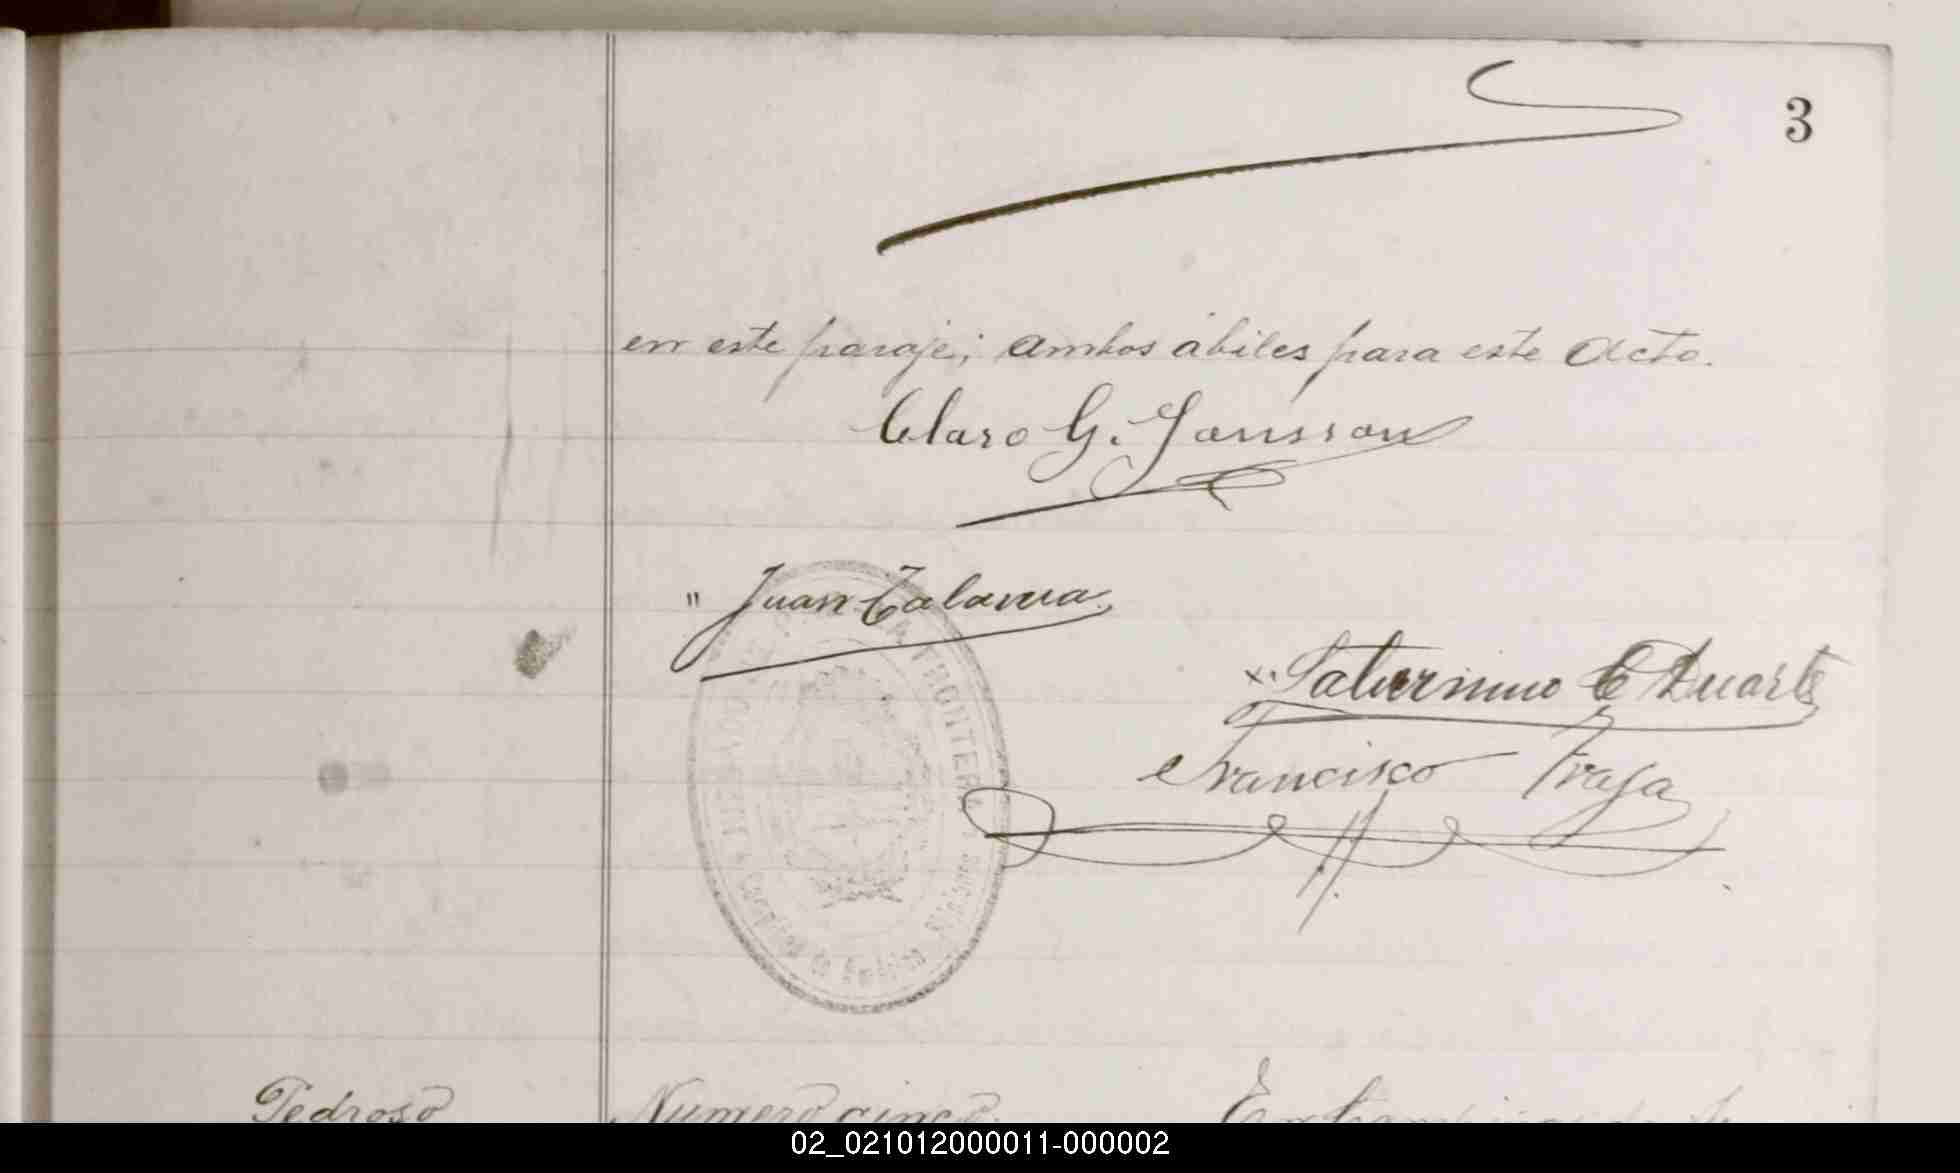 3
en este paraje; ambos ábiles para este Acto.
Claro G. Jansson
" Juan Talavera
x. Saturnino E Duarte
Francisco Fraga
FRONTERA
Misiones
Pedroso
Numero cinco.
02_021012000011-000002